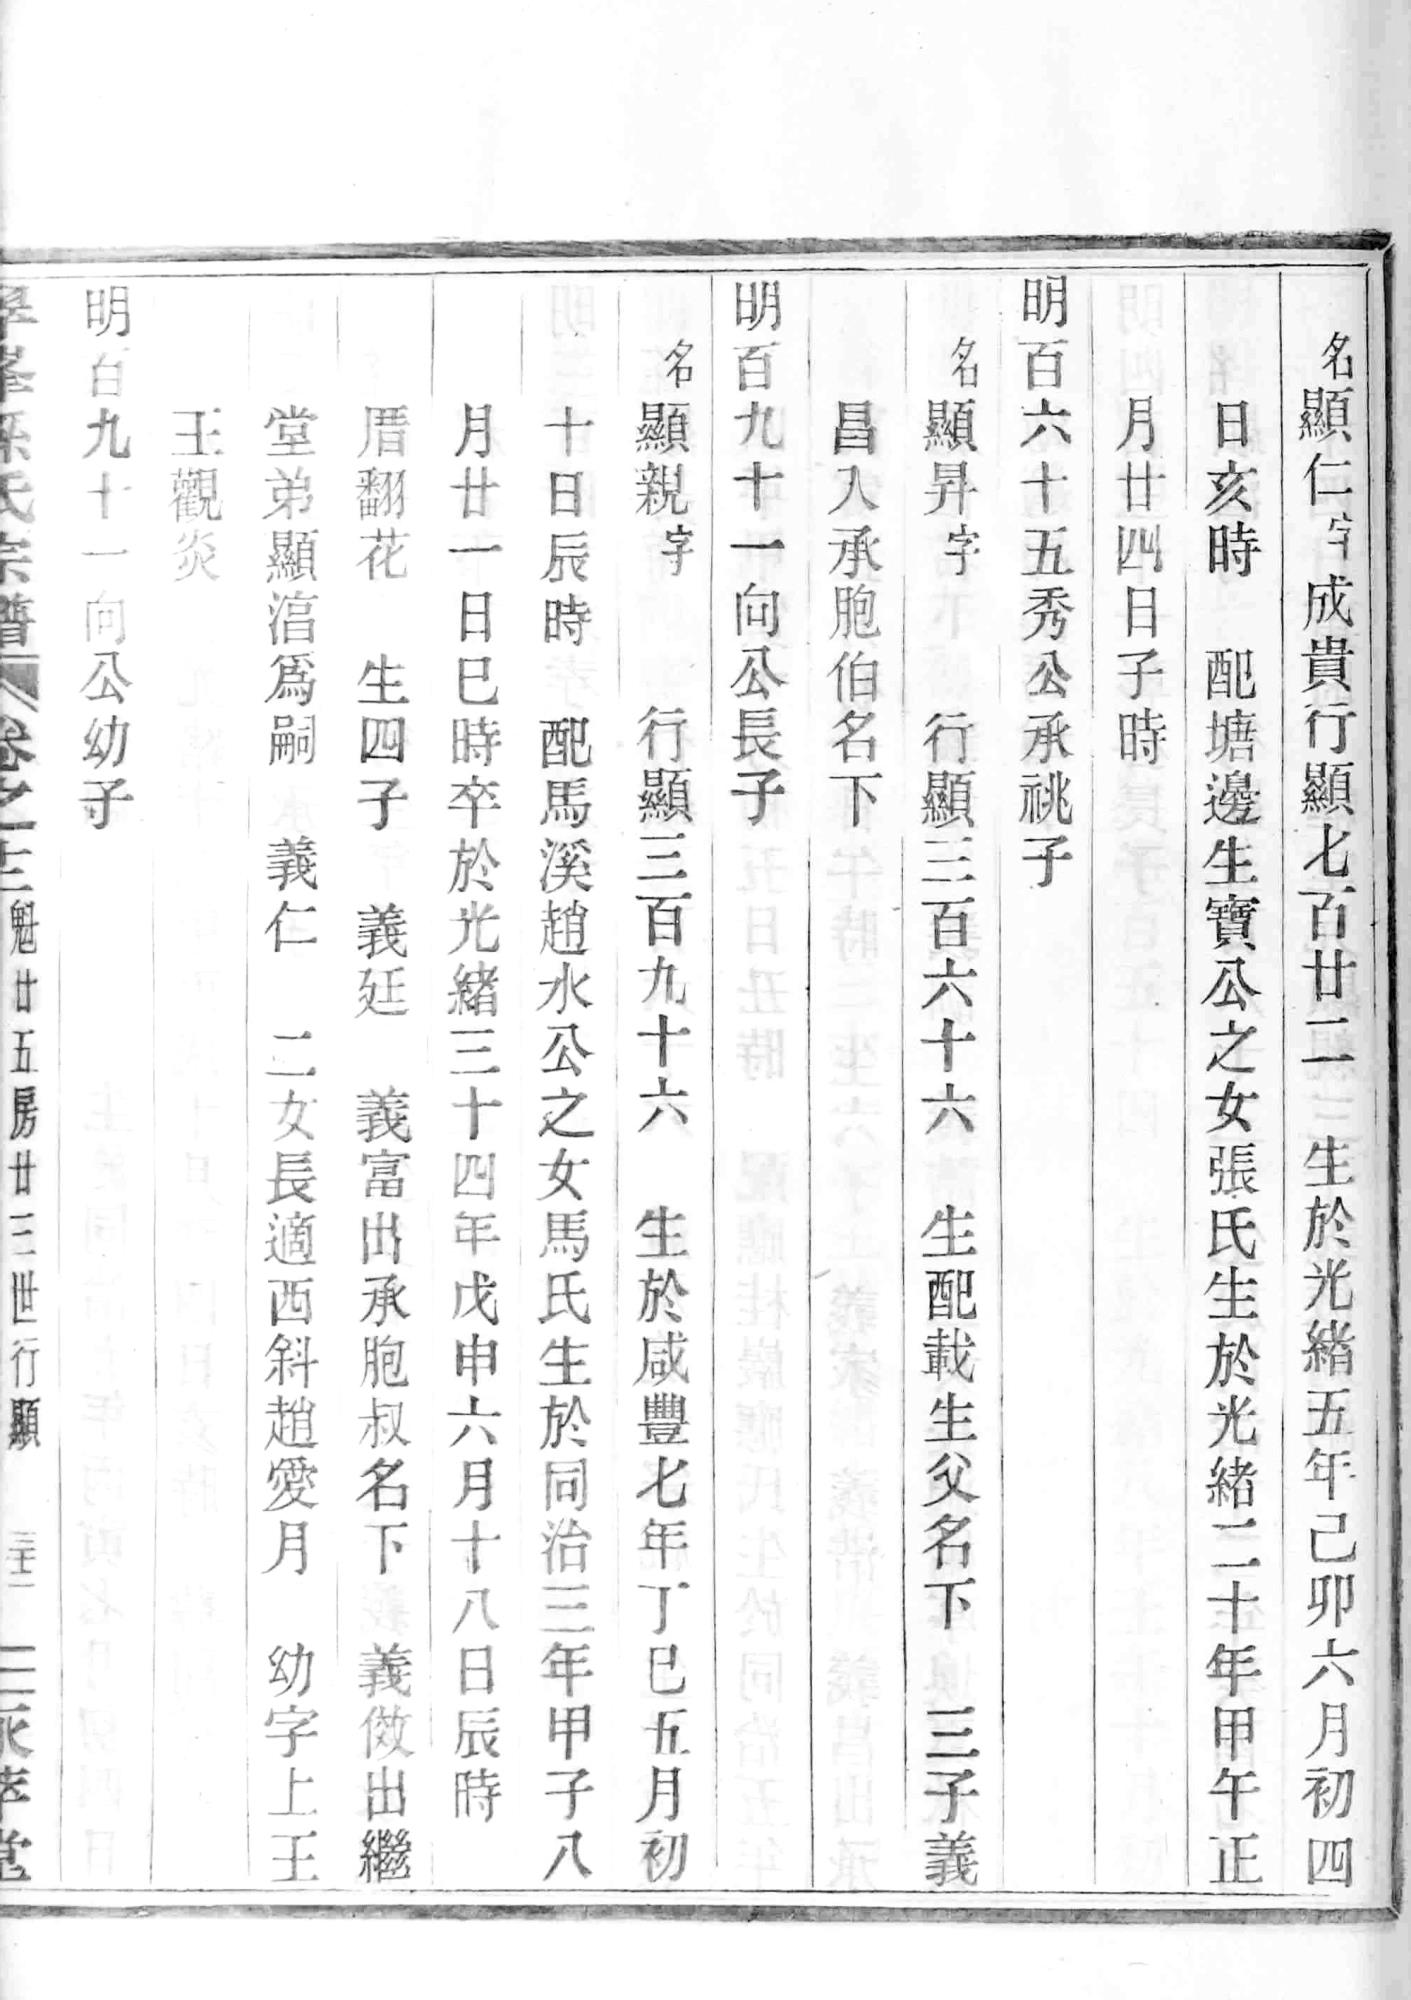 名顯仁字成貴行顯七百廿二生於光緒五年己卯六月初四
日亥時 配塘邊生寶公之女張氏生於光緒二十年甲午正
月廿四日子時
明百六十五秀公承祧子
名顯昇字 行顯三百六十六 生配載生父名下 三子義
昌入承胞伯名下
明百九十一向公長子
名顯親字 行顯三百九十六 生於咸豐七年丁巳五月初
十日辰時 配馬溪趙水公之女馬氏生於同治三年甲子八
月廿一日巳時卒於光緒三十四年戊申六月十八日辰時
厝翻花 生四子 義廷 義富出承胞叔名下 義傚出繼
堂弟顯涫爲嗣 義仁 二女長適西斜趙愛月 幼字上王
王觀炎
明百九十一向公幼子
孫氏宗譜 卷之十三 魁廿五房廿三世行顯